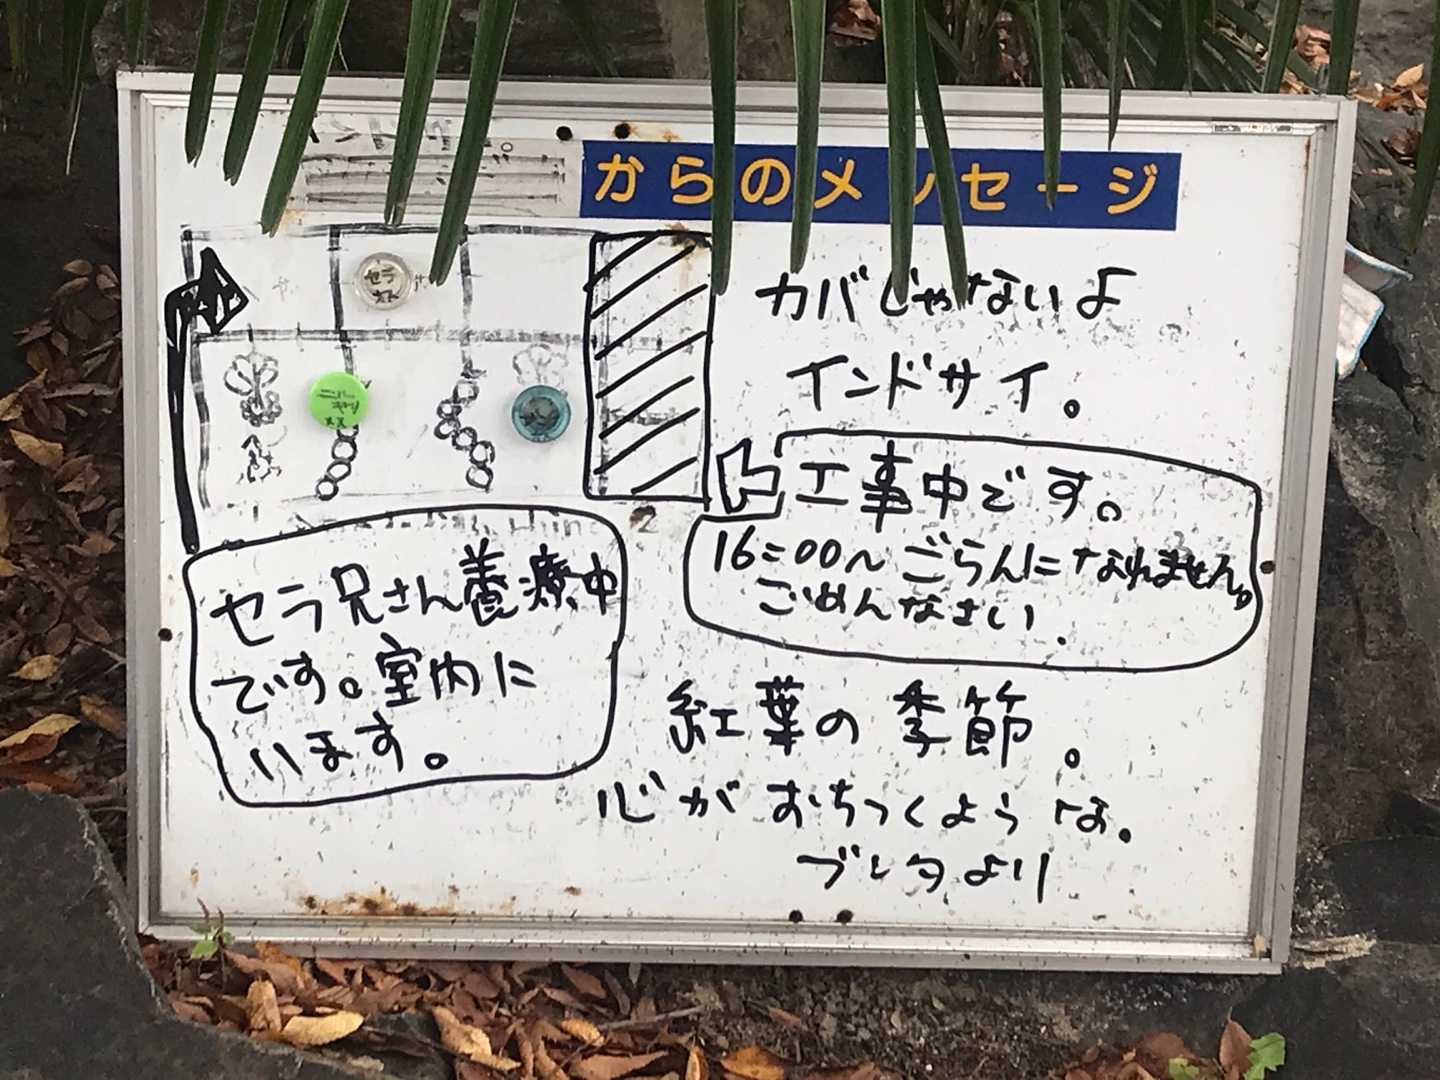 からのメッセージ
セラ
オス
ニルギリ
メス
カバじゃないよ
インドサイ。
工事中です。
16:00〜 ごらんになれません。
ごめんなさい.
セラ兄さん養療中
です。室内に
います。
紅葉の季節。
心がおちつくような。
ブレタより